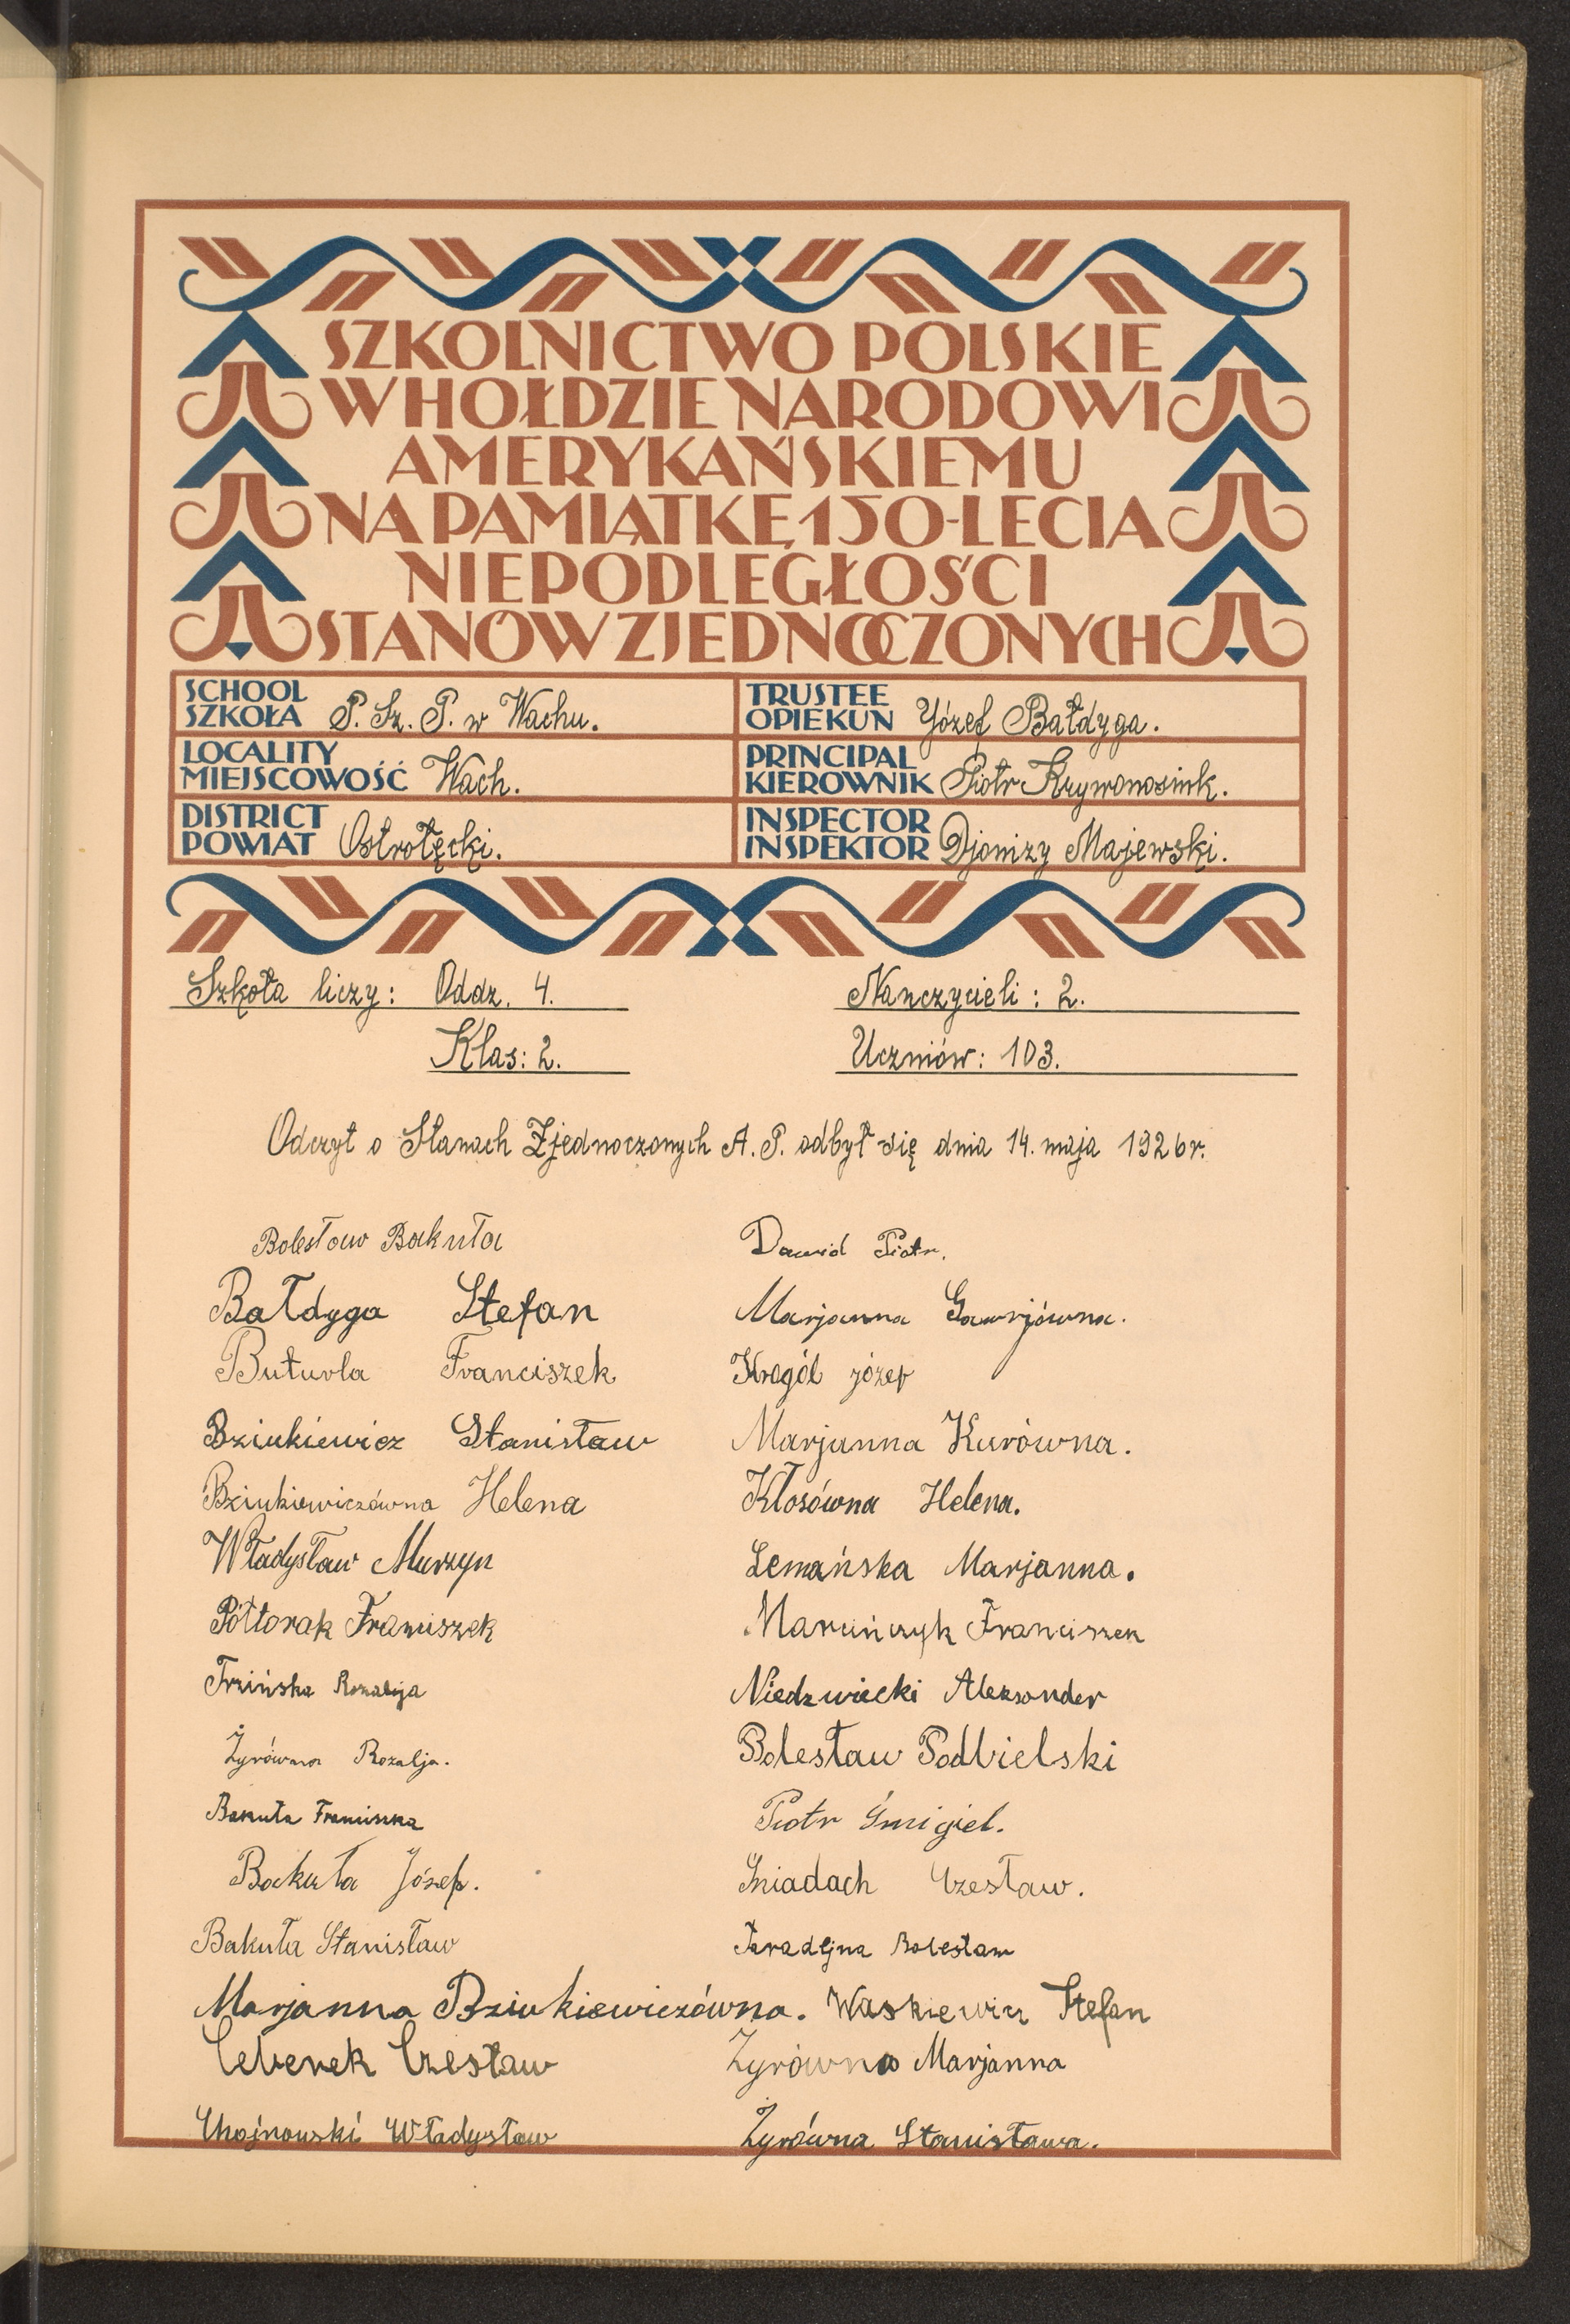 SZKOLNICTWO POLSKIE
W HOŁDZIE NARODOWI
AMERYKAŃSKIEMU
NA PAMIĄTKĘ 150-LECIA
NIEPODLEGŁOŚCI
STANÓW ZJEDNOCZONYCH
SCHOOL
SZKOŁA P. Sz. P. w Wachu.
TRUSTEE
OPIEKUN Józef Bałdyga.
LOCALITY
MIEJSCOWOŚĆ Wach.
PRINCIPAL
KIEROWNIK Piotr Krywonosiuk.
DISTRICT
POWIAT Ostrołęcki.
INSPECTOR
INSPEKTOR Djonizy Majewski.
Szkoła liczy: Oddz. 4. Nauczycieli: 2.
Klas: 2. Uczniów: 103.
Odczyt o Stanach Zjednoczonych A. P. odbył się dnia 14. maja 1926 r.
Bolesław Bakuła
Bałdyga Stefan
Buturla Franciszek
Bziukiewicz Stanisław
Bziukiewiczówna Helena
Władysław Murzyn
Półtorak Franciszek
Trzińska Rozalja
Żyrówna Rozalja.
Bakuła Franciszka
Bakuła Józef.
Bakuła Stanisław
Marjanna Bziukiewiczówna.
Ceberek Czesław
Chojnowski Władysław
Dawid Piotr.
Marjanna Gawrjówna.
Kragól józef
Marjanna Kurówna.
Kłosówna Helena.
Lemańska Marjanna.
Marcińczyk Franciszek
Niedzwiecki Aleksander
Bolesław Podbielski
Piotr Śmigiel.
Śniadach Czesław.
Taradejna Bolesław
Waskiewicz Stefan
Żyrówna Marjanna
Żyrówna Stanisława.